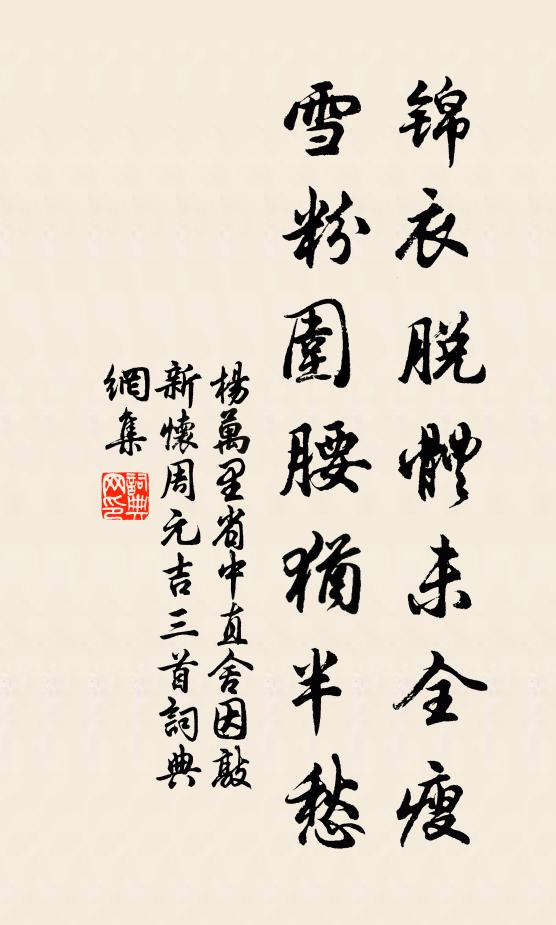 錦衣脫體未全瘦
雪粉圍腰猶半愁
楊萬里省中直舍因敲
新懷周元吉三首詞典
網集
詞典
网印